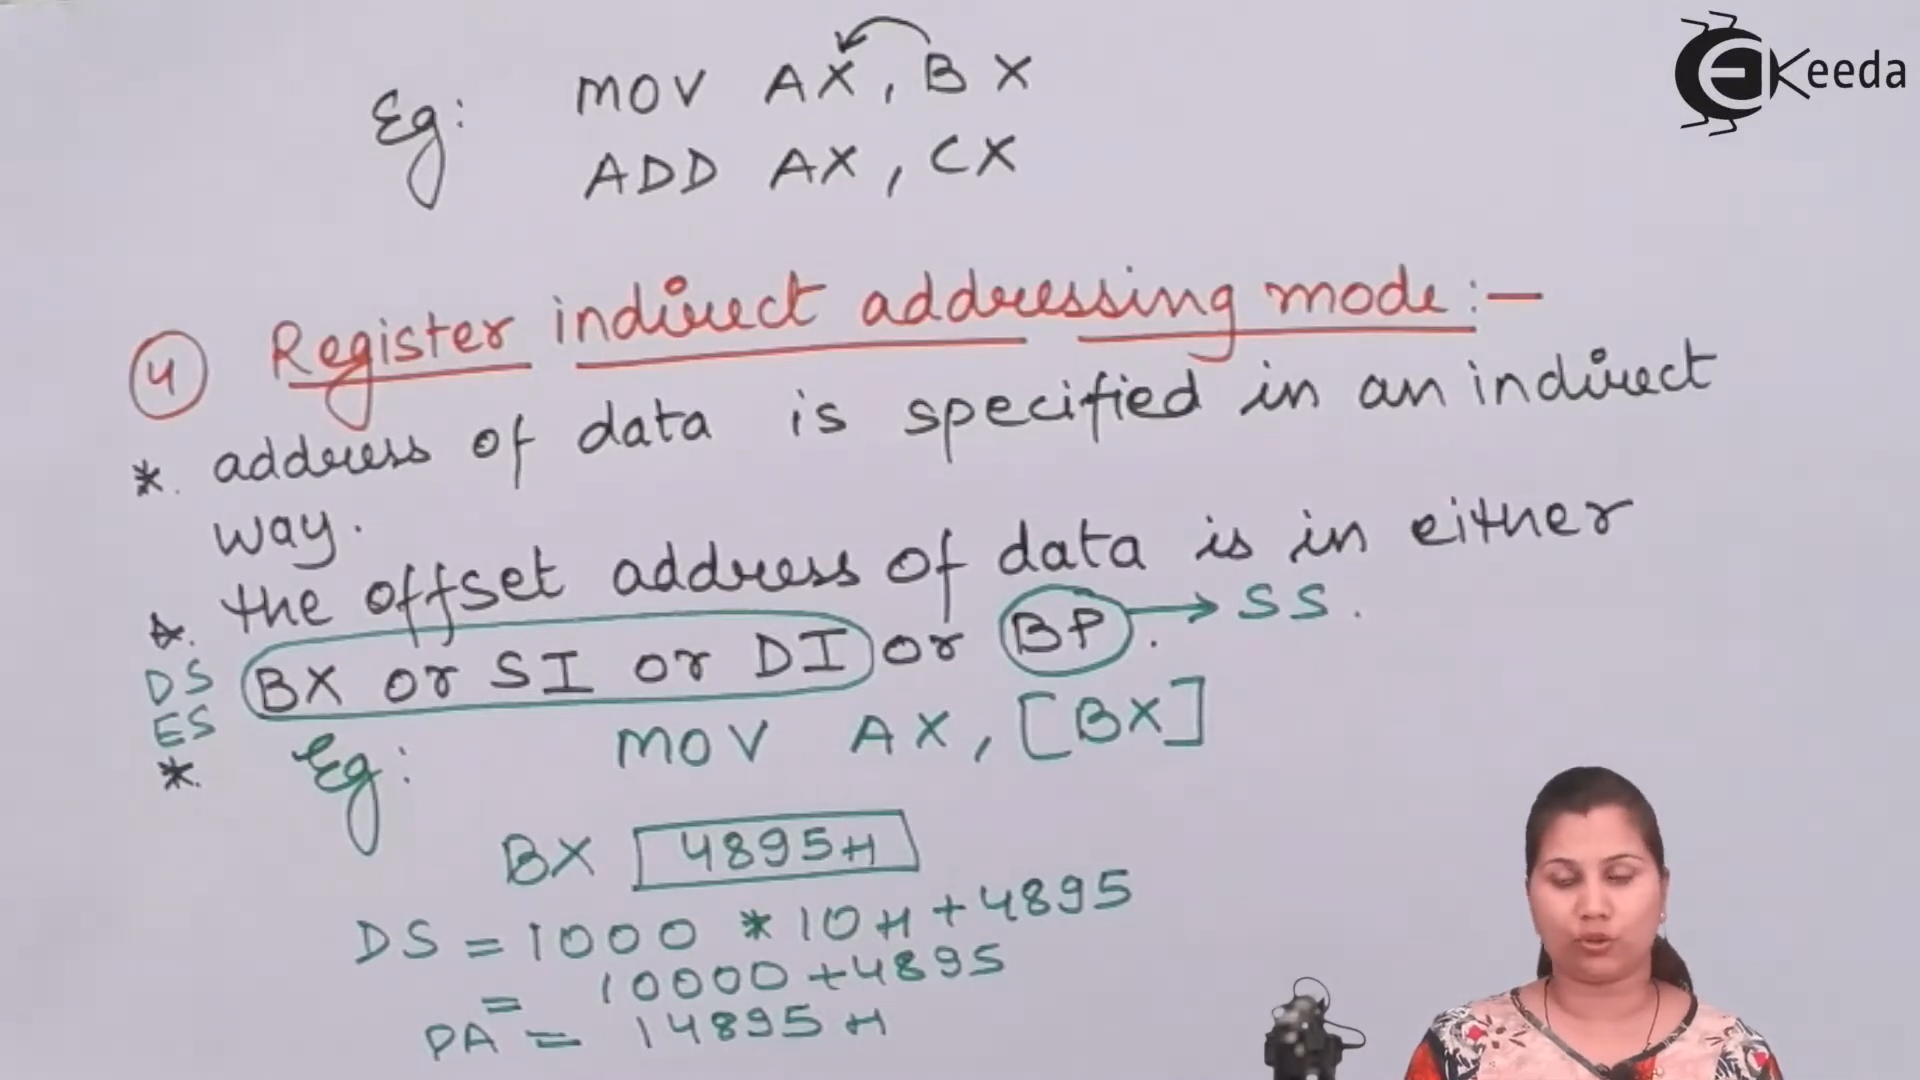 Keeda
Eg: MOV AX, BX
ADD AX, CX
4 Register indirect addressing mode:-
*. address of data is specified in an indirect
way.
*. the offset address of data is in either
DS BX or SI or DI or BP. → SS.
ES
*. Eg: MOV AX, [BX]
BX 4895H
DS = 1000 * 10H + 4895
= 10000 + 4895
PA = 14895H